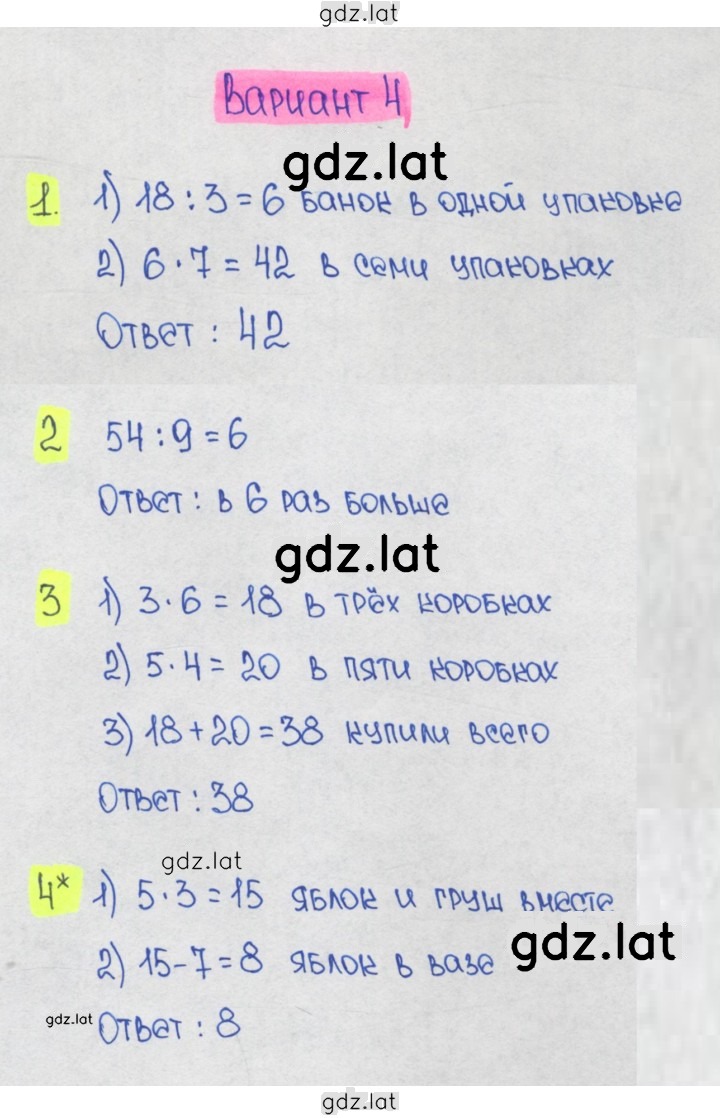 gdz.lat
Вариант 4
gdz.lat
1. 1) 18 : 3 = 6 банок в одной упаковке
2) 6 · 7 = 42 в семи упаковках
Ответ : 42
2 54 : 9 = 6
Ответ : в 6 раз больше
gdz.lat
3 1) 3 · 6 = 18 в трёх коробках
2) 5 · 4 = 20 в пяти коробках
3) 18 + 20 = 38 купили всего
Ответ : 38
gdz.lat
4* 1) 5 · 3 = 15 яблок и груш вместе
gdz.lat
2) 15 - 7 = 8 яблок в вазе
gdz.lat
Ответ : 8
gdz.lat